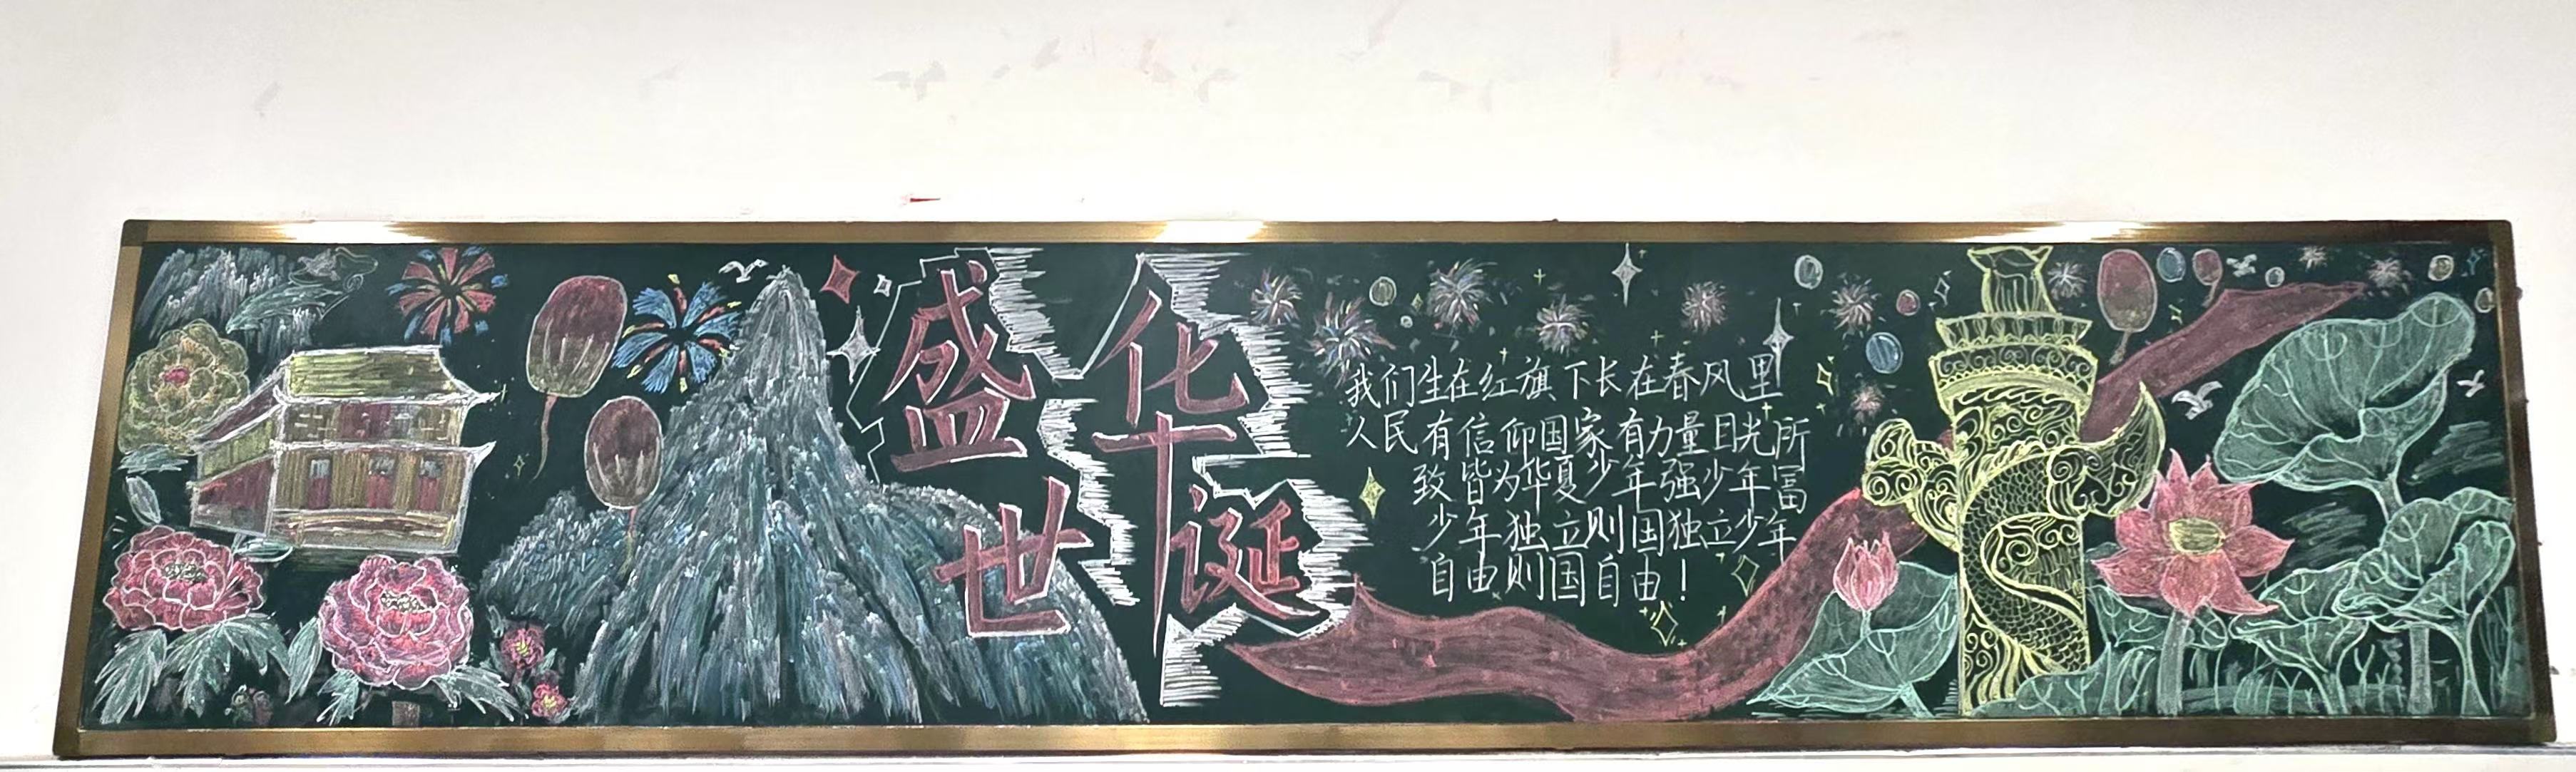 盛世
华诞
我们生在红旗下长在春风里
人民有信仰国家有力量目光所
致皆为华夏少年强少年富
少年独立则国独立少年
自由则国自由！